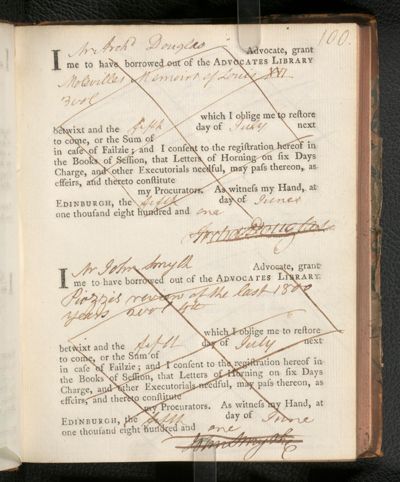 100.
I Mr Archd Douglas Advocate, grant
me to have borrowed out of the ADVOCATES LIBRARY
Molevilles Memoirs of Louis XVI
3 vol
which I oblige me to reſtore
betwixt and the fifth day of July next
to come, or the Sum of
in caſe of Failzie; and I conſent to the regiſtration hereof in
the Books of Seſſion, that Letters of Horning on ſix Days
Charge, and other Executorials needful, may paſs thereon, as
effeirs, and thereto conſtitute
my Procurators. As witneſs my Hand, at
EDINBURGH, the fifth day of June
one thouſand eight hundred and one
I Mr John Smyth Advocate, grant
me to have borrowed out of the ADVOCATES LIBRARY
Piozzis review of the last 1800
years 2 vol 4to
which I oblige me to reſtore
betwixt and the fifth day of July next
to come, or the Sum of
in caſe of Failzie; and I conſent to the regiſtration hereof in
the Books of Seſſion, that Letters of Horning on ſix Days
Charge, and other Executorials needful, may paſs thereon, as
effeirs, and thereto conſtitute
my Procurators. As witneſs my Hand, at
EDINBURGH, the fifth day of June
one thouſand eight hundred and one
John Smyth